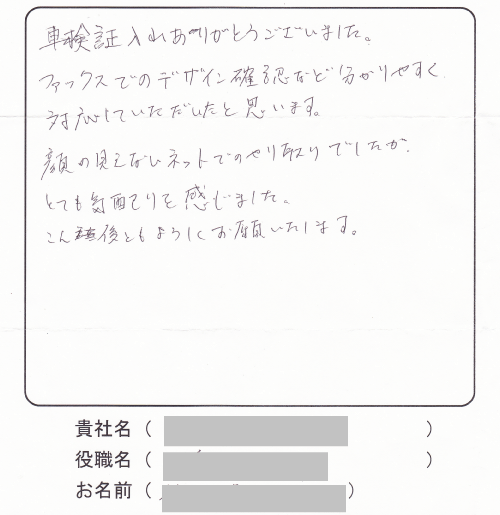 車検証入れありがとうございました。
ファックスでのデザイン確認など分かりやすく
対応していただいたと思います。
顔の見えないネットでのやり取りでしたが、
とても気配りを感じました。
こん後ともよろしくお願いいたします。
貴社名（ ）
役職名（ ）
お名前（ ）